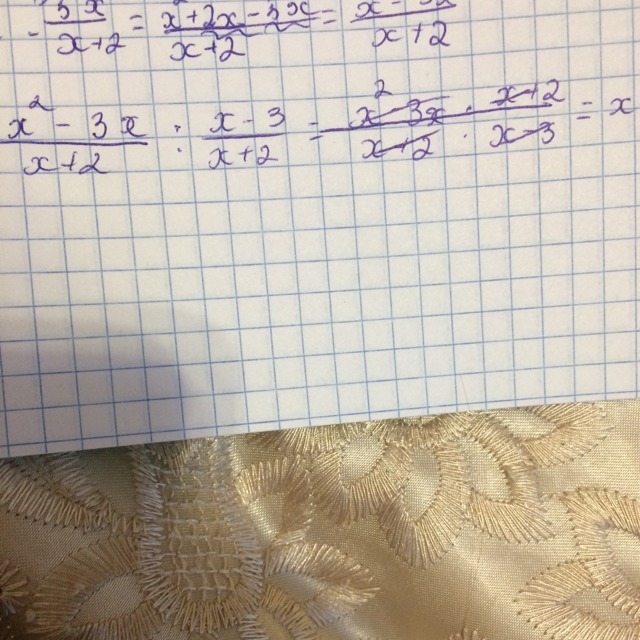 - 3x/x+2 = x²+2x-3x/x+2 = /x+2
x² - 3x/x+2 : x-3/x+2 = x²-3x/x+2 · x+2/x-3 = x